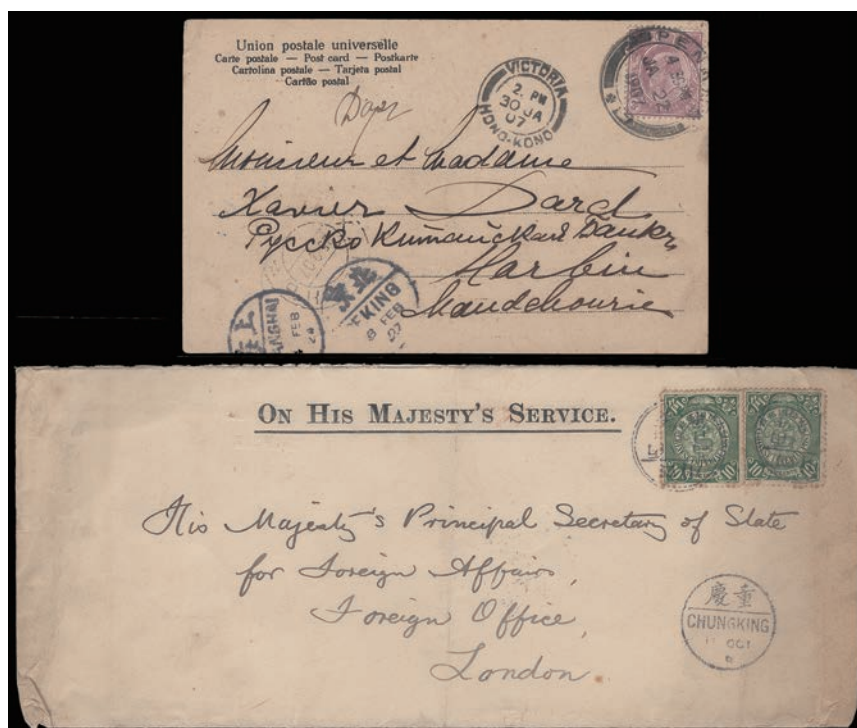 Union postale universelle
Carte postale — Post card — Postkarte
Cartolina postale — Tarjeta postal
Cartão postal
VICTORIA
2. PM
30 JA
07
HONG-KONG
PENANG
JA 22
1907
Monsieur et Madame
Xavier Dard
Русско Китайская Банкъ
Harbin
Mandchourie
北京
PEKING
8 FEB
07
上海
SHANGHAI
FEB
ON HIS MAJESTY'S SERVICE.
His Majesty's Principal Secretary of State
for Foreign Affairs,
Foreign Office,
London.
慶重
CHUNGKING
11 OCT